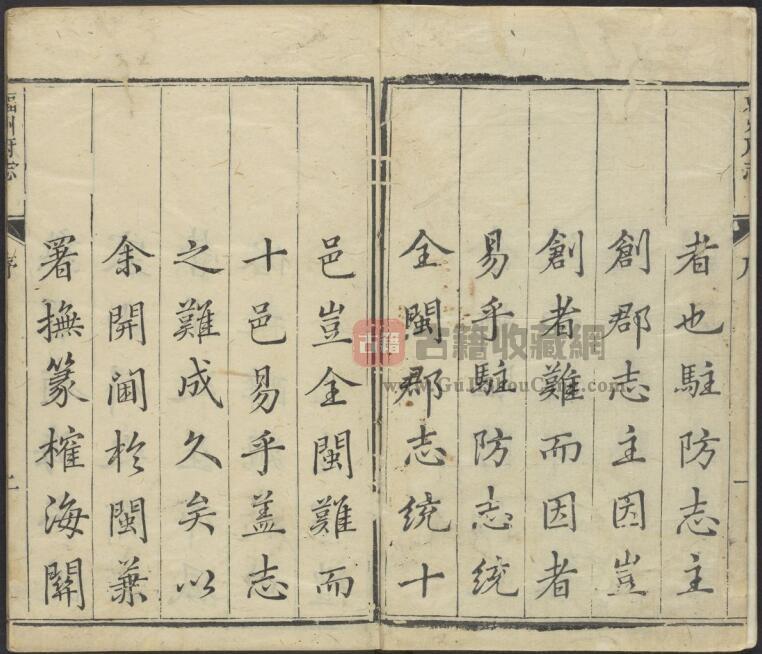 者也駐防志主
創郡志主因豈
創者難而因者
易乎駐防志統
全閩郡志統十
邑豈全閩難而
十邑易乎盖志
之難成久矣以
余開閫於閩兼
署撫篆榷海關
福州府志
序
古籍
古籍收藏網